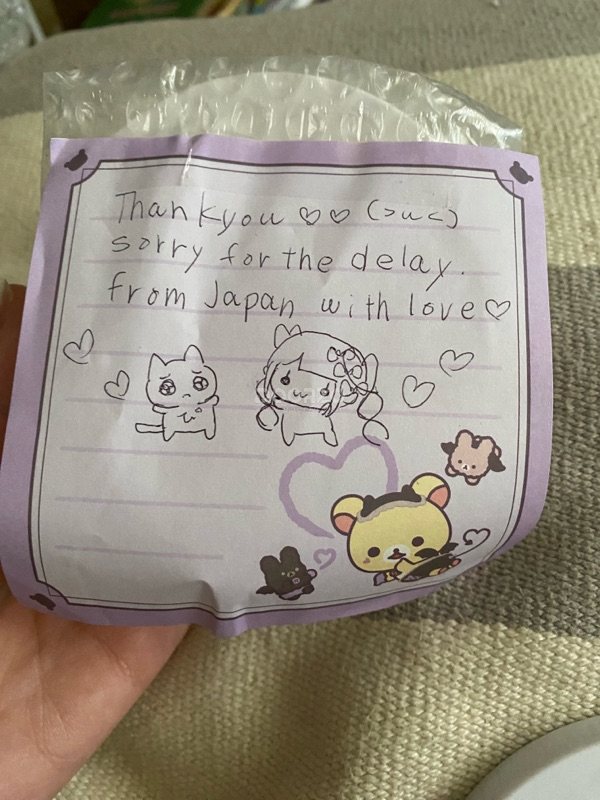 Thankyou ♡♡ (>u<)
sorry for the delay.
from Japan with love♡